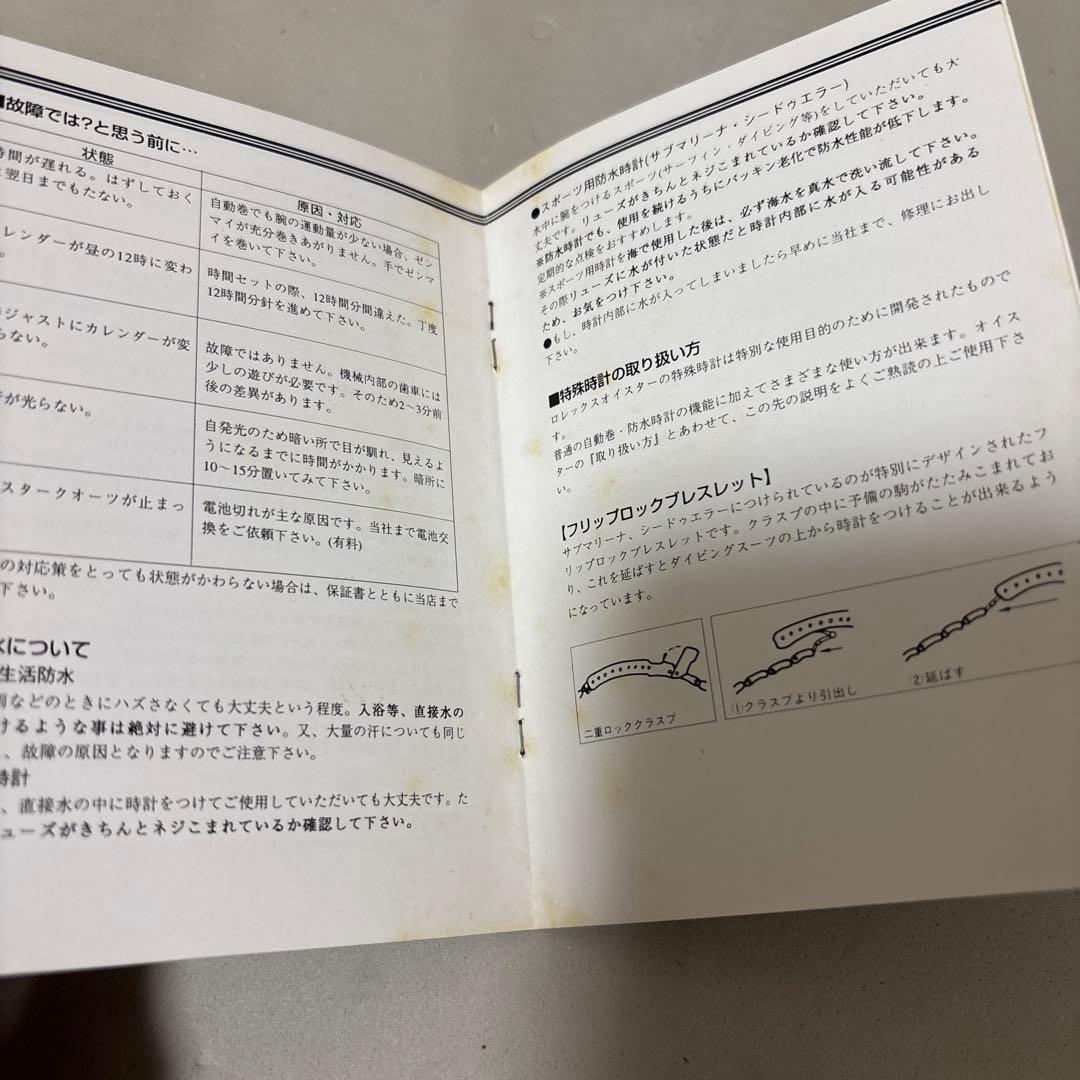 ■故障では?と思う前に…
状態
原因・対応
時間が遅れる。はずしておく
翌日までもたない。
自動巻でも腕の運動量が少ない場合、ゼン
マイが充分巻きあがりません。手でゼンマ
イを巻いて下さい。
レンダーが昼の12時に変わ
時間セットの際、12時間分間違えた。丁度
12時間分針を進めて下さい。
ジャストにカレンダーが変
らない。
故障ではありません。機械内部の歯車には
少しの遊びが必要です。そのため2〜3分前
後の差異があります。
が光らない。
自発光のため暗い所で目が馴れ、見えるよ
うになるまでに時間がかかります。暗所に
10〜15分置いてみて下さい。
スタークオーツが止まっ
電池切れが主な原因です。当社まで電池交
換をご依頼下さい。(有料)
の対応策をとっても状態がかわらない場合は、保証書とともに当店まで
下さい。
について
生活防水
などのときにハズさなくても大丈夫という程度。入浴等、直接水の
けるような事は絶対に避けて下さい。又、大量の汗についても同じ
、故障の原因となりますのでご注意下さい。
時計
、直接水の中に時計をつけてご使用していただいても大丈夫です。た
ューズがきちんとネジこまれているか確認して下さい。
●スポーツ用防水時計(サブマリーナ・シードゥエラー)
水中に腕をつけるスポーツ(サーフィン・ダイビング等)をしていただいても大
丈夫です。リューズがきちんとネジこまれているか確認して下さい。
※防水時計でも、使用を続けるうちにパッキン老化で防水性能が低下します。
定期的な点検をおすすめします。
※スポーツ用時計を海で使用した後は、必ず海水を真水で洗い流して下さい。
その際リューズに水が付いた状態だと時計内部に水が入る可能性がある
ため、お気をつけ下さい。
●もし、時計内部に水が入ってしまいましたら早めに当社まで、修理にお出し
下さい。
■特殊時計の取り扱い方
ロレックスオイスターの特殊時計は特別な使用目的のために開発されたもので
す。
普通の自動巻・防水時計の機能に加えてさまざまな使い方が出来ます。オイス
ターの『取り扱い方』とあわせて、この先の説明をよくご熟読の上ご使用下さ
い。
【フリップロックブレスレット】
サブマリーナ、シードゥエラーにつけられているのが特別にデザインされたフ
リップロックブレスレットです。クラスプの中に予備の駒がたたみこまれてお
り、これを延ばすとダイビングスーツの上から時計をつけることが出来るよう
になっています。
二重ロッククラスプ
①クラスプより引出し
②延ばす